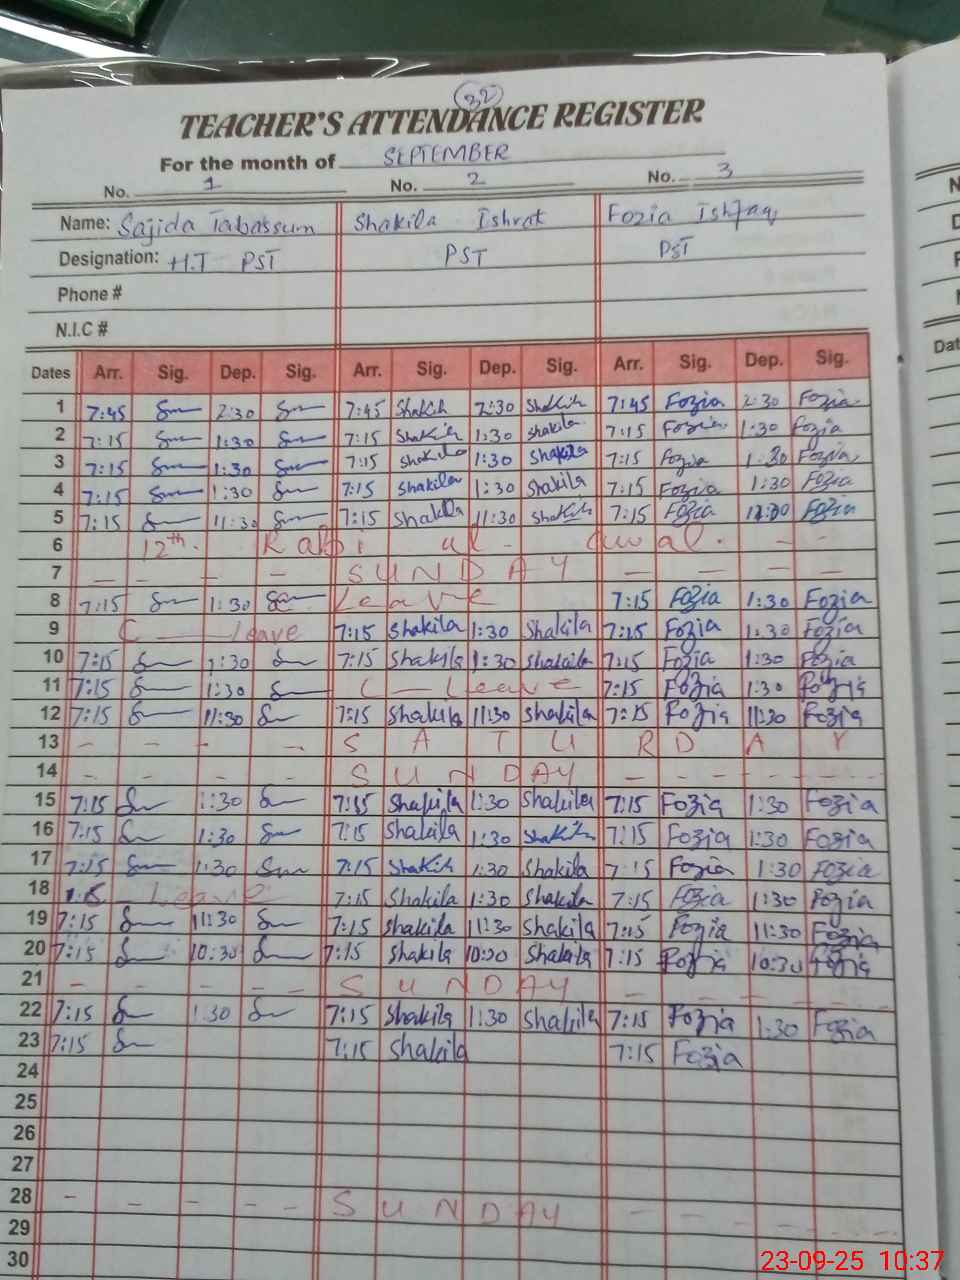 32
TEACHER'S ATTENDANCE REGISTER
For the month of SEPTEMBER
No. 1 No. 2 No. 3
Name: Sajida Tabassum Shakila Ishrat Fozia Ishfaq
Designation: H.T PST PST PST
Phone #
N.I.C #
Dates Arr. Sig. Dep. Sig. Arr. Sig. Dep. Sig. Arr. Sig. Dep. Sig.
1 7:45 2:30 7:45 Shakila 2:30 Shakila 7:45 Fozia 2:30 Fozia
2 7:15 1:30 7:15 Shakila 1:30 Shakila 7:15 Fozia 1:30 Fozia
3 7:15 1:30 7:15 Shakila 1:30 Shakila 7:15 Fozia 1:30 Fozia
4 7:15 1:30 7:15 Shakila 1:30 Shakila 7:15 Fozia 1:30 Fozia
5 7:15 11:30 7:15 Shakila 11:30 Shakila 7:15 Fozia 11:30 Fozia
6 12th. Rabi ul - awal. - -
7 - - - - SUNDAY - - - -
8 7:15 1:30 Leave 7:15 Fozia 1:30 Fozia
9 C — leave 7:15 Shakila 1:30 Shakila 7:15 Fozia 1:30 Fozia
10 7:15 1:30 7:15 Shakila 1:30 Shakila 7:15 Fozia 1:30 Fozia
11 7:15 1:30 C — Leave 7:15 Fozia 1:30 Fozia
12 7:15 11:30 7:15 Shakila 11:30 Shakila 7:15 Fozia 11:30 Fozia
13 - - - - SATURDAY
14 - - - - SUNDAY - - - - - - -
15 7:15 1:30 7:15 Shakila 1:30 Shakila 7:15 Fozia 1:30 Fozia
16 7:15 1:30 7:15 Shakila 1:30 Shakila 7:15 Fozia 1:30 Fozia
17 7:15 1:30 7:15 Shakila 1:30 Shakila 7:15 Fozia 1:30 Fozia
18 Leave 7:15 Shakila 1:30 Shakila 7:15 Fozia 1:30 Fozia
19 7:15 11:30 7:15 Shakila 11:30 Shakila 7:15 Fozia 11:30 Fozia
20 7:15 10:30 7:15 Shakila 10:30 Shakila 7:15 Fozia 10:30 Fozia
21 - - - - - SUNDAY - - - - - -
22 7:15 1:30 7:15 Shakila 1:30 Shakila 7:15 Fozia 1:30 Fozia
23 7:15 7:15 Shakila 7:15 Fozia
24
25
26
27
28 - - - - SUNDAY - - - - - -
29
30
Dat
23-09-25 10:37